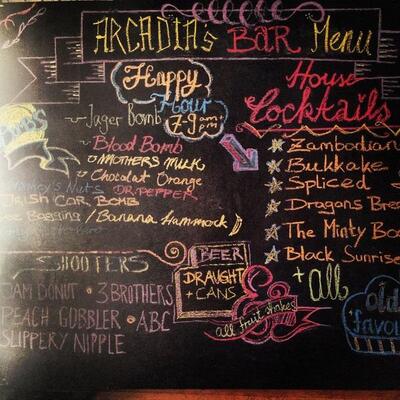 ARCADIA's BAR Menu
Happy
Hour
7-9 am+pm
House
Cocktails
Bombs
Jager Bomb
Blood Bomb
MOTHERS MILK
Chocolat Orange
Nuts DR. PEPPER
IRISH CAR BOMB
Baggins / Banana Hammock
Zambodian
Bukkake
Spliced
Dragons Brea
The Minty Boo
Black Sunrise
+ all
old
favou
SHOOTERS
JAM DONUT • 3 BROTHERS
PEACH GOBBLER • ABC
SLIPPERY NIPPLE
BEER
DRAUGHT
+ CANS
all fruit shakes